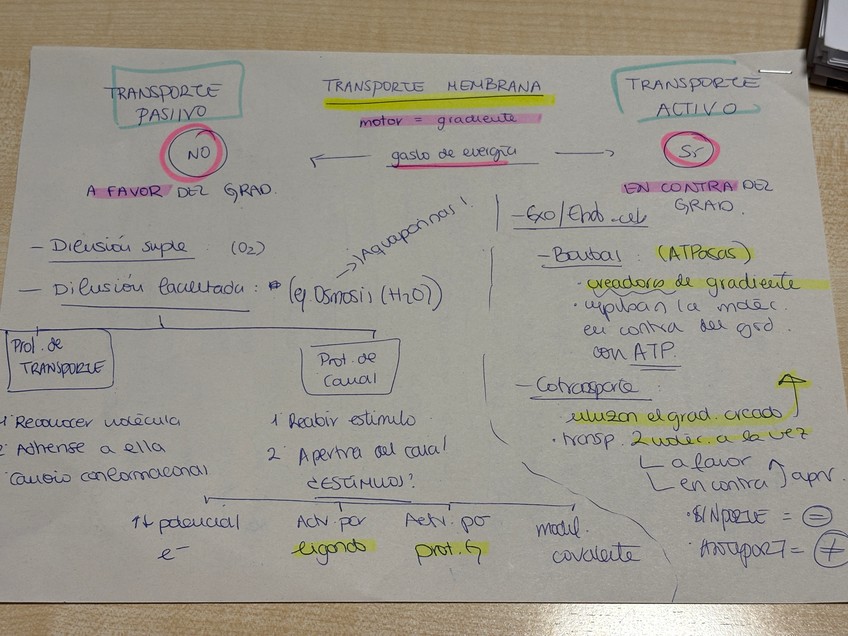 TRANSPORTE PASIVO
TRANSPORTE MEMBRANA
TRANSPORTE ACTIVO
motor = gradiente
NO
← gasto de energía →
Sí
A FAVOR DEL GRAD.
EN CONTRA DEL GRAD.
- Difusión simple (O2)
- Difusión facilitada: (ej. Osmosis (H2O))
→ ¡Aquaporinas!
Prot. de
TRANSPORTE
1 Reconocer molécula
2 Adherirse a ella
Cambio conformacional
Prot. de
Canal
1 Recibir estímulo
2 Apertura del canal
¿ESTÍMULOS?
potencial
e-
Activ. por
ligando
Activ. po
prot. G
modif.
covalente
- Exo/Endo
- Bombas: (ATPasas)
· creadoras de gradiente
la moléc.
en contra del grd.
con ATP.
- Cotransporte:
utilizan el grad. creado
· transp. 2 moléc. a la vez
a favor
en contra
· SINPORTE = =
· ANTIPORT = ≠